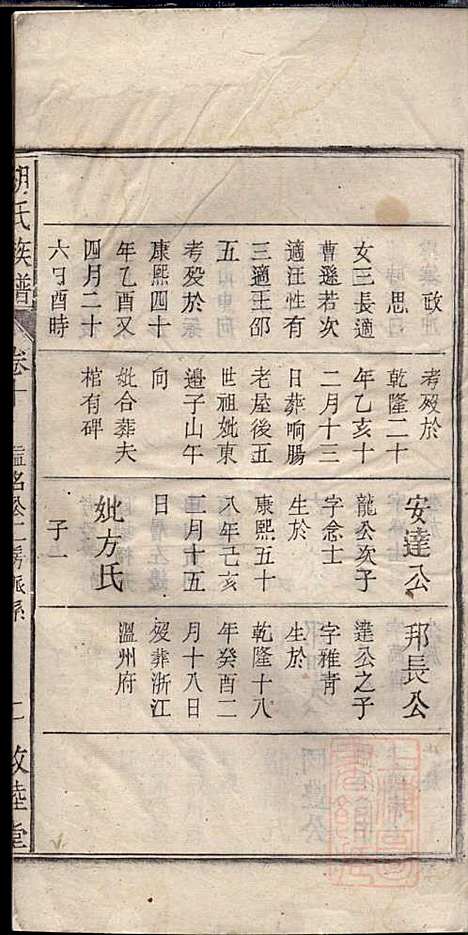 政
思
女三長適
曹遜若次
適汪性有
三適王邵
五
考歿於
康熙四十
年乙酉又
四月二十
六日酉時
考歿於
乾隆二十
年乙亥十
二月十三
日葬响腸
老屋後五
世祖妣東
邊子山午
向
妣合葬夫
棺有碑
安達公
龍公次子
字念士
生於
康熙五十
八年己亥
二月十五
日
妣方氏
子一
邦長公
達公之子
字雅青
生於
乾隆十八
年癸酉二
月十八日
歿葬浙江
溫州府
胡氏族譜
卷十
二房派系
敦睦堂